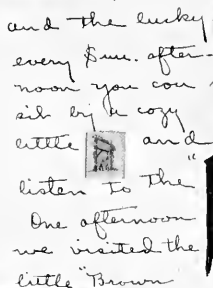 and the lucky
every Sun. after-
noon you can
sit by a cozy
little and
listen to the "
One afternoon
we visited the
little "Brown